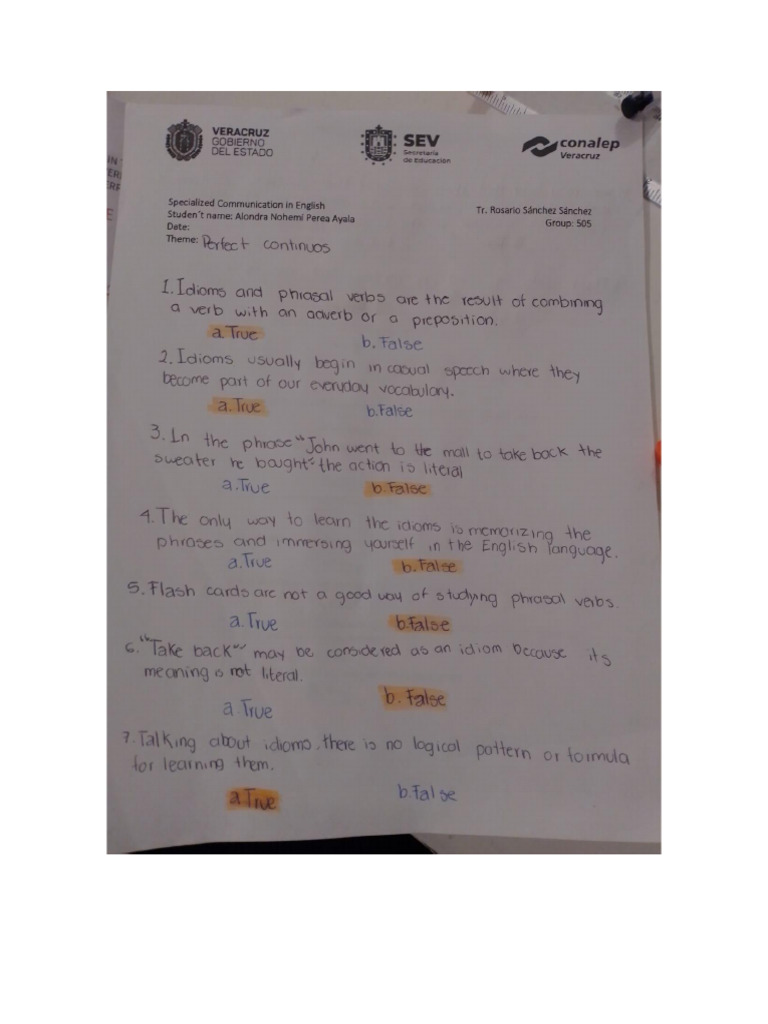 VERACRUZ
GOBIERNO
DEL ESTADO
SEV
Secretaría
de Educación
conalep
Veracruz
Specialized Communication in English
Studen´t name: Alondra Nohemí Perea Ayala
Date:
Theme: Perfect continuos
Tr. Rosario Sánchez Sánchez
Group: 505
1. Idioms and phrasal verbs are the result of combining
a verb with an adverb or a preposition.
a. True b. False
2. Idioms usually begin in casual speech where they
become part of our everyday vocabulary.
a. True b. False
3. In the phrase "John went to the mall to take back the
sweater he bought" the action is literal
a. True b. False
4. The only way to learn the idioms is memorizing the
phrases and immersing yourself in the English language.
a. True b. False
5. Flash cards are not a good way of studying phrasal verbs.
a. True b. False
6. "Take back" may be considered as an idiom because its
meaning is not literal.
a. True b. False
7. Talking about idioms, there is no logical pattern or formula
for learning them.
a. True b. False